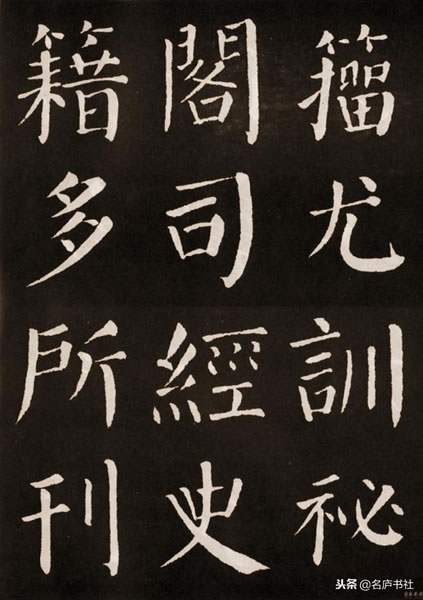 籀尤訓祕
閣司經史
籍多所刊
头条 @名庐书社